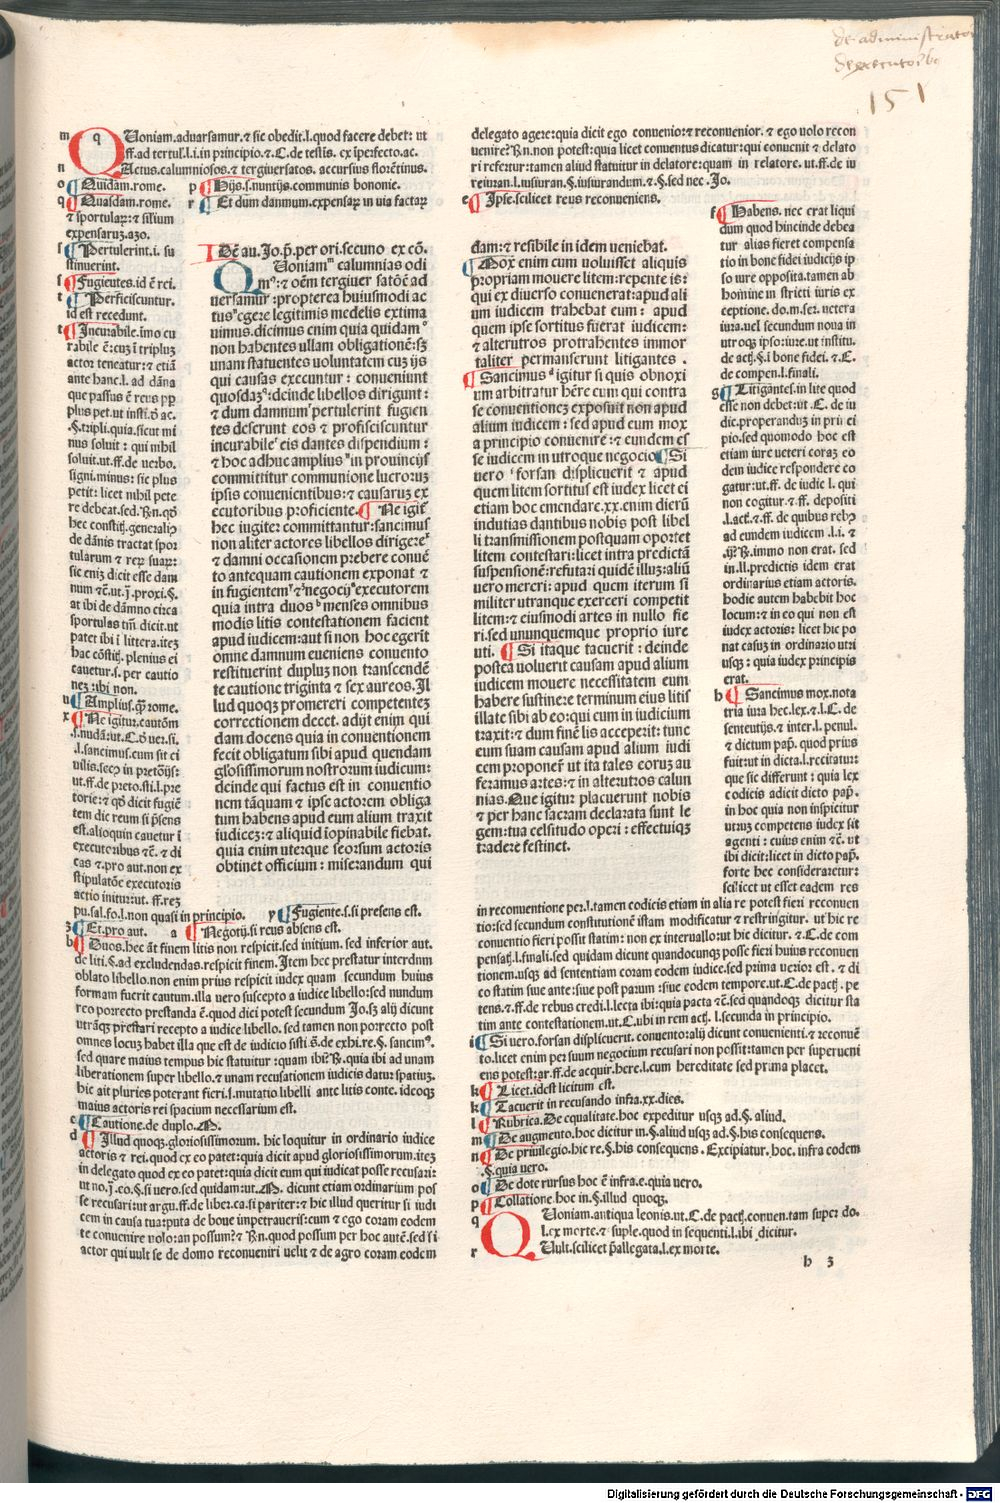 de administrato
de executorib9
151
Uoniam.aduarsamur.⁊ sic obedit.l.quod facere debet: ut
ff.ad tertul.l.i.in principio.⁊.C.de testis. ex īperfecto.ac.
Actus.calumniosos.⁊ tergiuersatos. accursius florētinus.
o Quidam.rome. p Hijs.s.nuntijs.communis bononie.
q Quasdam.rome. r Et dum damnum.expensaꝝ in uia factaꝝ
⁊ sportulaꝝ:⁊ silium
expensaruꝫ.azo.
s Pertulerint.i. su
stinuerint.
s Fugientes.id ē rei.
t Perficiscuntur.
id est recedunt.
t Incurabile.imo cu
rabile ē:cuꝫ ī tripluꝫ
actor teneatur:⁊ etiā
ante hanc.l. ad dāna
que passus ē reus pꝑ
plus pet.ut insti.ð ac.
.§.tripli.quia.sicut mi
nus soluit : qui nihil
soluit.ut.ff.de uerbo.
signi.minus: sic plus
petit: licet nihil pete
re debeat.sed.Rn.qð
hec constitu.generaliꝰ
de dānis tractat spor
tularum ⁊ reꝝ suaꝝ:
sic eniꝫ dicit esse dam
num ⁊c.ut.j.proxi.§.
at ibi de dāmno circa
sportulas tm̄ dicit.ut
patet ibi ī littera.iteꝫ
hac cōstitu. plenius ei
cauetur.s. per cautio
neꝫ :ibi non.
u Amplius.qꝫ rome.
x Ne igitur.cautōm
.s.nudā:ut.C.ð uer.si.
.l.sancimus.cum sit ci
uilis.secꝰ in pretorijs:
ut.ff.de preto.sti.l.pre
torie:⁊ qð dicit fugiē
tem dic reum si p̄sens
est.alioquin cauetur ī
executoribus ⁊c. ⁊ di
cas ⁊.pro aut.non ex
stipulatōe executoris
actio initur:ut. ff.reꝫ
pu.sal.fo.l.non quasi in principio. y Fugiente.s.si presens est.
z Et.pro aut. a Negotij.si reus absens est.
b Duos.hec āt finem litis non respicit.sed initium. sed inferior aut.
de liti.§.ad excludendas.respicit finem. Item hec prestatur interdum
oblato libello.non enim prius respicit iudex quam secundum huius
formam fuerit cautum.illa uero suscepto a iudice libello:sed nundum
reo porrecto prestanda ē.quod dici potest secundum Jo.sꝫ alij dicunt
utrāqꝫ prestari recepto a iudice libello. sed tamen non porrecto post
omnes locuꝫ habet illa que est de iudicio sisti §.de exhi.re.§. sancimꝰ.
sed quare maius tempus hic statuitur : quam ibi?R.quia ibi ad unam
liberationem super libello.⁊ unam recusationem iudicis datur spatiuꝫ.
hic ait pluries poterant fieri.s.mutatio libelli ante litis conte. ideoqꝫ
maius actoris rei spacium necessarium est.
c Cautione.de duplo.M.
d Illud quoqꝫ.gloriosissimorum. hic loquitur in ordinario iudice
actoris ⁊ rei.quod ex eo patet:quia dicit apud gloriosissimorum.iteꝫ
in delegato quod ex eo patet:quia dicit eum qui iudicat posse recusari:
ut no.j.eo.§.si uero.sed quidam:ut.M. dicunt etiam ordinarium pos
se recusari:ut argu.ff.de liber.ca.si pariter:⁊ hic illud queritur si iudi
cem in causa tua:puta de boue impetraueris:cum ⁊ ego coram eodem
te conuenire uolo:an possum?⁊ Rn.quod possum per hoc autē.sed si
actor qui uult se de domo reconueniri uelit ⁊ de agro coram eodem
De au. Jo.p̄.per ori.secuno ex cō.
Uoniam calumnias odi
mꝰ:⁊ oēm tergiuer satōē ad
uersamur :propterea huiusmodi ac
tus egere legitimis medelis extima
uimus.dicimus enim quia quidam
non habentes ullam obligationē:sꝫ
unam statuentes uoluntatem cuꝫ ijs
qui causas execuntur : conueniunt
quosdaꝫ :deinde libellos dirigunt :
⁊ dum damnum pertulerint fugien
tes deserunt eos ⁊ profisciscuntur
incurabile eis dantes dispendium :
⁊ hoc adhuc amplius in prouincijs
committitur communione lucroruꝫ
ipsis conuenientibus:⁊ causaruꝫ ex
ecutoribus proficiente. Ne igit
hec iugiter committantur:sancimus
non aliter actores libellos dirigere
⁊ damni occasionem prebere conuē
to antequam cautionem exponat ⁊
in fugientem ⁊ negocij executorem
quia intra duos menses omnibus
modis litis contestationem facient
apud iudicem:aut si non hoc egerīt
omne damnum eueniens conuento
restituerint dupluꝫ non transcendē
te cautione triginta ⁊ sex aureos.Il
lud quoqꝫ promereri competentes
correctionem decet. adijt enim qui
dam docens quia in conuentionem
fecit obligatum sibi apud quendam
glosissimorum nostrorum iudicum:
deinde qui factus est in conuentio
nem tāquam ⁊ ipse actorem obliga
tum habens apud eum alium traxit
iudiceꝫ:⁊ aliquid iopinabile fiebat.
quia enim uterque seorsum actoris
obtinet officium : miserandum qui
delegato agere:quia dicit ego conuenior:⁊ reconuenior. ⁊ ego uolo recon
uenire?Rn.non potest:quia licet conuentus dicatur:qui conuenit ⁊ delato
ri refertur:tamen aliud statuitur in delatore:quam in relatore. ut.ff.de iu
reiuran.l.iusiuran.§.iusiurandum.⁊.§.sed nec .Jo.
e Ipse.scilicet reus reconueniens.
dam:⁊ resibile in idem ueniebat.
Mox enim cum uoluisset aliquis
propriam mouere litem:repente is:
qui ex diuerso conuenerat:apud ali
um iudicem trahebat eum : apud
quem ipse sortitus fuerat iudicem:
⁊ alterutros protrahentes immor
taliter permanserunt litigantes .
Sancimus igitur si quis obnoxi
um arbitratur hēre eum qui contra
se conuentioneꝫ exposuit non apud
alium iudicem : sed apud eum mox
a principio conuenire :⁊ eundem es
se iudicem in utroque negocio Si
uero forsan displicuerit ⁊ apud
quem litem sortitus est iudex licet ei
etiam hoc emendare.xx.enim dierū
indutias dantibus nobis post libel
li transmissionem postquam oportet
litem contestari:licet intra predictā
suspensionē:refutari quidē illuꝫ:aliū
uero merceri: apud quem iterum si
militer utranque exerceri competit
litem:⁊ eiusmodi artes in nullo fie
ri.sed ununquemque proprio iure
uti. Si itaque tacuerit : deinde
postea uoluerit causam apud alium
iudicem mouere necessitatem eum
habere sustinere terminum eius litis
illate sibi ab eo:qui cum in iudicium
traxit:⁊ dum finē lis acceperit: tunc
eum suam causam apud alium iudi
cem proponer ut ita tales coruꝫ au
feramus artes:⁊ in alterutros calun
nias.Que igitur placuerunt nobis
⁊ per hanc sacram declarata sunt le
gem:tua celsitudo operi : effectuiqꝫ
tradere festinet.
f Habens. nec erat liqui
dum quod hincinde debea
tur alias fieret compensa
tio in bone fidei iudicijs ip
so iure opposita.tamen ab
homine in stricti iuris ex
ceptione. do.m.ser. uetera
iura.uel secundum noua in
utroqꝫ ipso:iure.ut institu.
de actj.§.i bone fidei. ⁊.C.
de compen.l.finali.
g Litigantes.in lite quod
esse non debet:ut .C. de iu
dic.properanduꝫ in prī ci
pio.sed quomodo hoc est
etiam iure ueteri coraꝫ eo
dem iudice respondere co
gatur:ut.ff. de iudic l. qui
non cogitur.⁊.ff. depositi
.l.act.⁊.ff. de quibus rebꝰ
ad eundem iudicem .l.i. ⁊
.ij.R.immo non erat. sed
in.ll.predictis idem erat
ordinarius etiam actoris.
hodie autem habebit hoc
locum:⁊ in eo qui non est
iudex actoris: licet hic po
nat casuꝫ in ordinario utri
usqꝫ : quia iudex principis
erat.
h Sancimus mox.nota
tria iura hec.lex.⁊.l.C. de
sententijs.⁊ inter.l. penul.
⁊ dictum pap. quod prius
fuit:ut in dicta.l.recitatur:
que sic differunt : quia lex
codicis adicit dicto pap.
in hoc quia non inspicitur
utruꝫ competens iudex sit
agenti : cuius enim ⁊c. ut
ibi dicit:licet in dicto pap.
forte hec consideraretur:
scilicet ut esset eadem res
in reconuentione per.l.tamen codicis etiam in alia re potest fieri reconuen
tio:sed secundum constitutionē istam modificatur ⁊ restringitur. ut hic re
conuentio fieri possit statim: non ex interuallo:ut hic dicitur. ⁊.C.de com
pensatj.l.finali.sed quidam dicunt quandocunqꝫ posse fieri huius reconuen
tionem.usqꝫ ad sententiam coram eodem iudice.sed prima uerior est. ⁊ di
co statim siue ante:siue post parum :siue eodem tempore.ut.C.de pactj . pe
tens.⁊.ff.de rebus credi.l.lecta ibi:quia pacta ⁊c.sed quandoqꝫ dicitur sta
tim ante contestationem.ut.C.ubi in rem actj. l.secunda in principio.
i Si uero.forsan displicuerit. conuento:alij dicunt conuenienti.⁊ reconuē
to.licet enim per suum negocium recusari non possit:tamen per superueni
ens potest:ar.ff.de acquir.here.l.cum hereditate sed prima placet.
k Licet.idest licitum est.
k Tacuerit in recusando infra.xx.dies.
l Rubrica.De equalitate.hoc expeditur usqꝫ ad.§. aliud.
m De augmento.hoc dicitur in.§.aliud usqꝫ ad.§.his consequens.
n De priuilegio.hic re.§.his consequens . Excipiatur. hoc. infra eodem
.§.quia uero.
o De dote rursus hoc ē infra.e.quia uero.
p Collatione.hoc in.§.illud quoqꝫ.
q Uoniam.antiqua leonis.ut.C.de pactj.conuen.tam super do.
l.ex morte.⁊ suple.quod in sequenti.l.ibi dicitur.
r Uult.scilicet p̄allegata.l.ex morte.
h 3
Digitalisierung gefördert durch die Deutsche Forschungsgemeinschaft - DFG